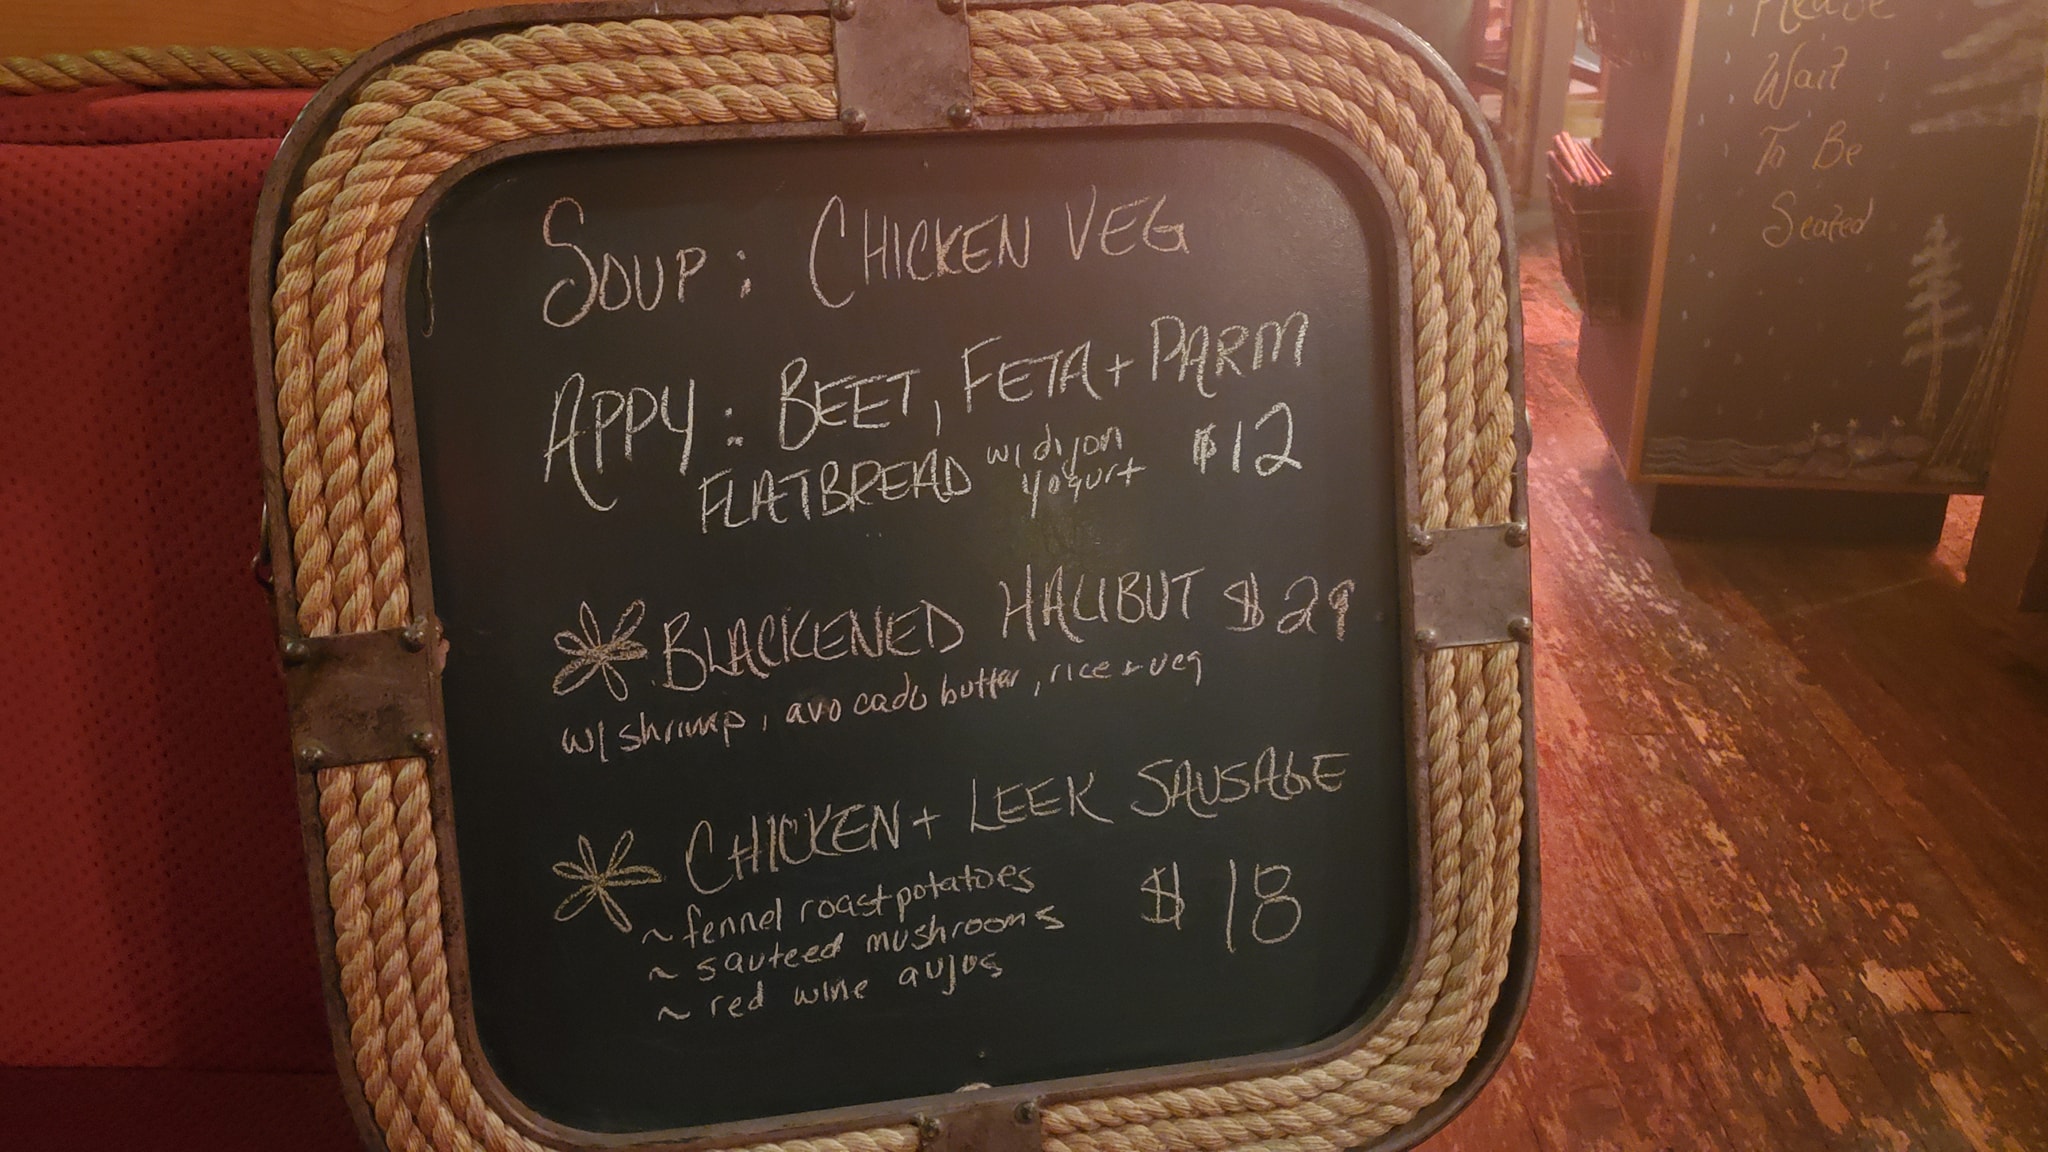 SOUP: CHICKEN VEG
APPY: BEET, FETA + PARM
FLATBREAD w/ dijon yogurt $12
BLACKENED HALIBUT $29
w/ shrimp, avocado butter, rice + veg
CHICKEN + LEEK SAUSAGE
~ fennel roast potatoes
~ sauteed mushrooms
~ red wine aujus
$18
Please
Wait
To Be
Seated